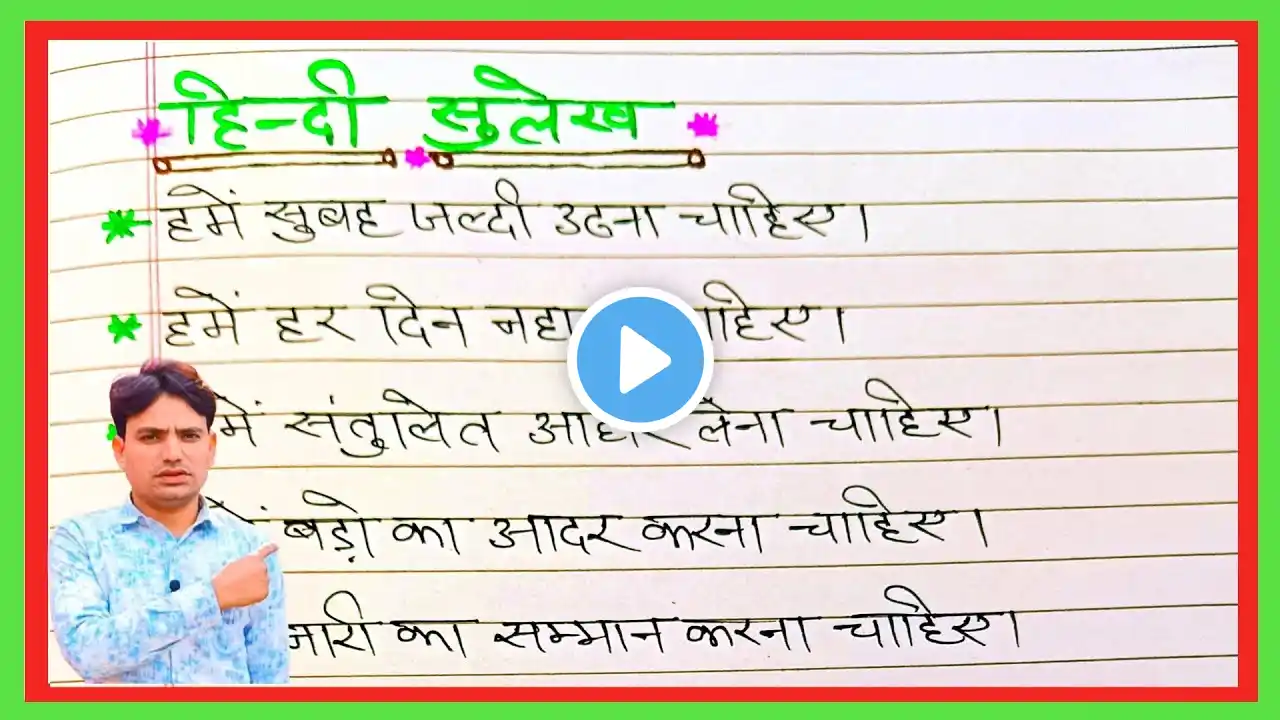 हिन्दी सुलेख
हमें सुबह जल्दी उठना चाहिए।
हमें हर दिन नहा ाहिए।
में संतुलित आहार लेना चाहिए।
बड़ो का आदर करना चाहिए।
का सम्मान करना चाहिए।